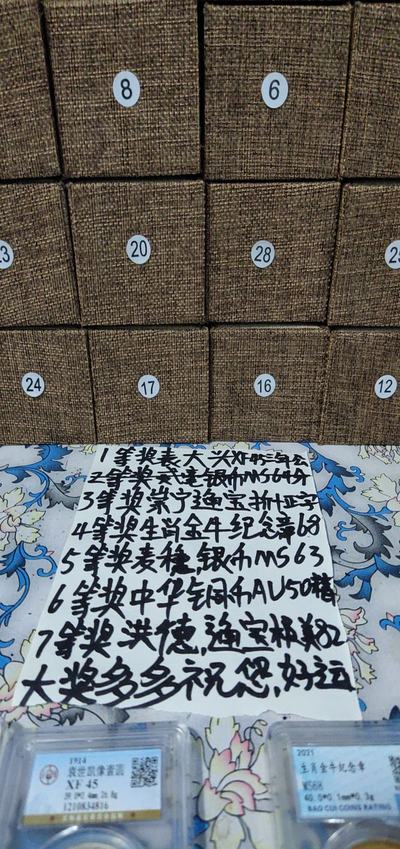 8
6
20
28
24
17
16
12
1等奖袁大头XF45三年
2等奖武漢银币MS64分
3等奖崇宁通宝折十正字
4等奖生肖金牛纪念章68
5等奖麦穗银币MS63
6等奖中华铜币AU50精
7等奖洪德,通宝极美82
大奖多多祝您,好运
1914
袁世凯像壹圆
XF 45
1210834816
2021
生肖金牛纪念章
MS68
40.0*0.1mm*0.3g
BAO CUI COINS RATING